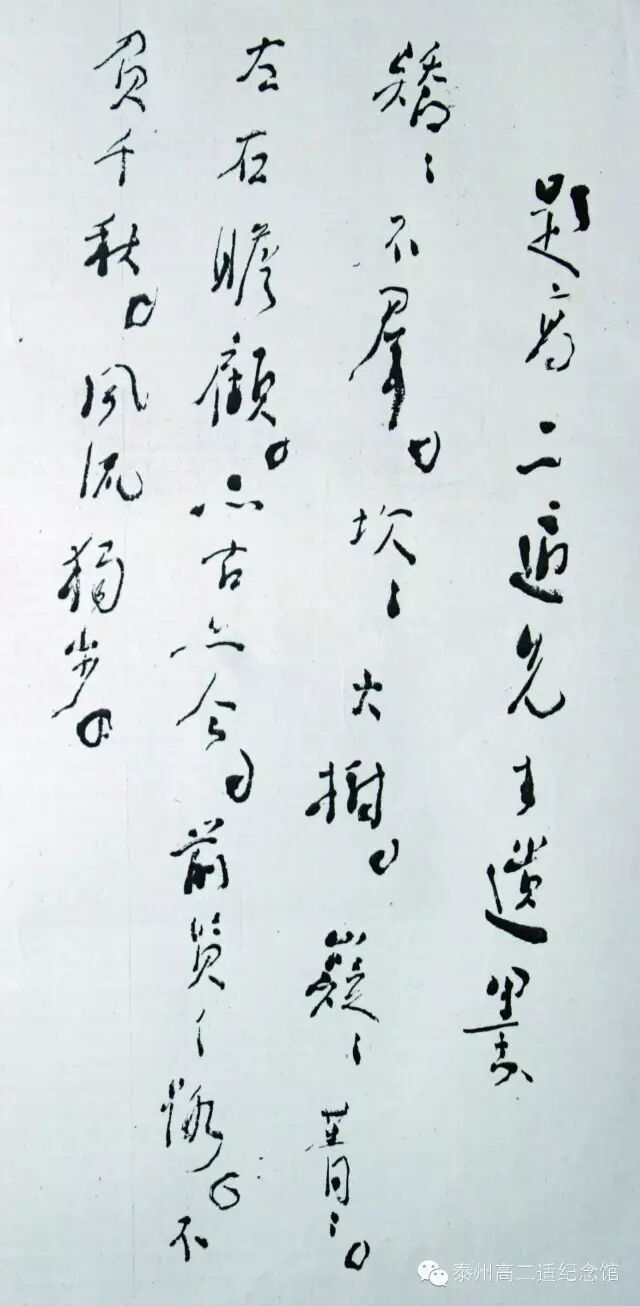 題高二適先生遺墨
矯〻不羣。坎〻大樹。嶷〻菁〻。
左右瞻顧。亦古亦今。前賢之路。不
負千秋。風流獨步。
泰州高二适纪念馆